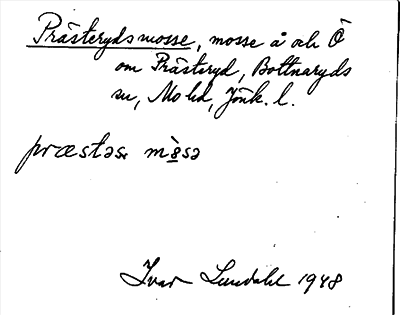 Prästerydsmosse, mosse å och Ö
om Prästeryd, Bottnaryds
sn, Mo hd, Jönk. l.
præstəsr mòsə
Ivar Lundahl 1948